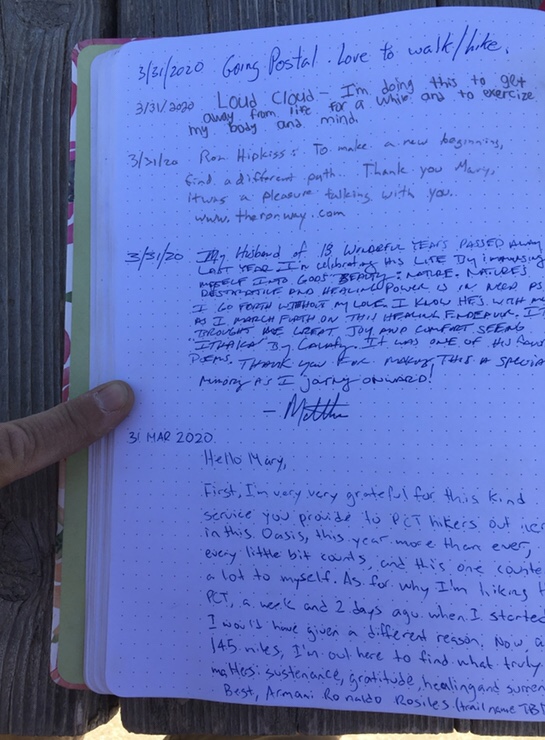 3/31/2020 Going Postal. Love to walk/hike.
3/31/2020 Loud Cloud - I'm doing this to get
away from life for a while and to exercize
my body and mind.
3/31/20 Ron Hipkiss: To make a new beginning,
find a different path. Thank you Mary,
it was a pleasure talking with you.
www.theronway.com
3/31/20 My Husband of 18 Wonderful Years passed away
last year I'm celebrating his life by immersing
myself into Gods beauty: Nature. Nature's
and healing power is in need as
I go forth without my love. I know he's with me
as I march forth on this healing endeavor. It
brought me great joy and comfort seeing
"Ithaka" by Cavafy. It was one of his favorite
poems. Thank you for making this a special
memory as I jorny onward!
- Matthew
31 MAR 2020
Hello Mary,
First, I'm very very grateful for this kind
service you provide to PCT hikers out here
in this Oasis, this year more than ever,
every little bit counts, and this one counted
a lot to myself. As for why I'm hiking the
PCT, a week and 2 days ago when I started
I would have given a different reason. Now, at
145 miles, I'm out here to find what truly
matters: sustenance, gratitude, healing and surren
Best, Armani Ronaldo Rosiles (trail name TBD